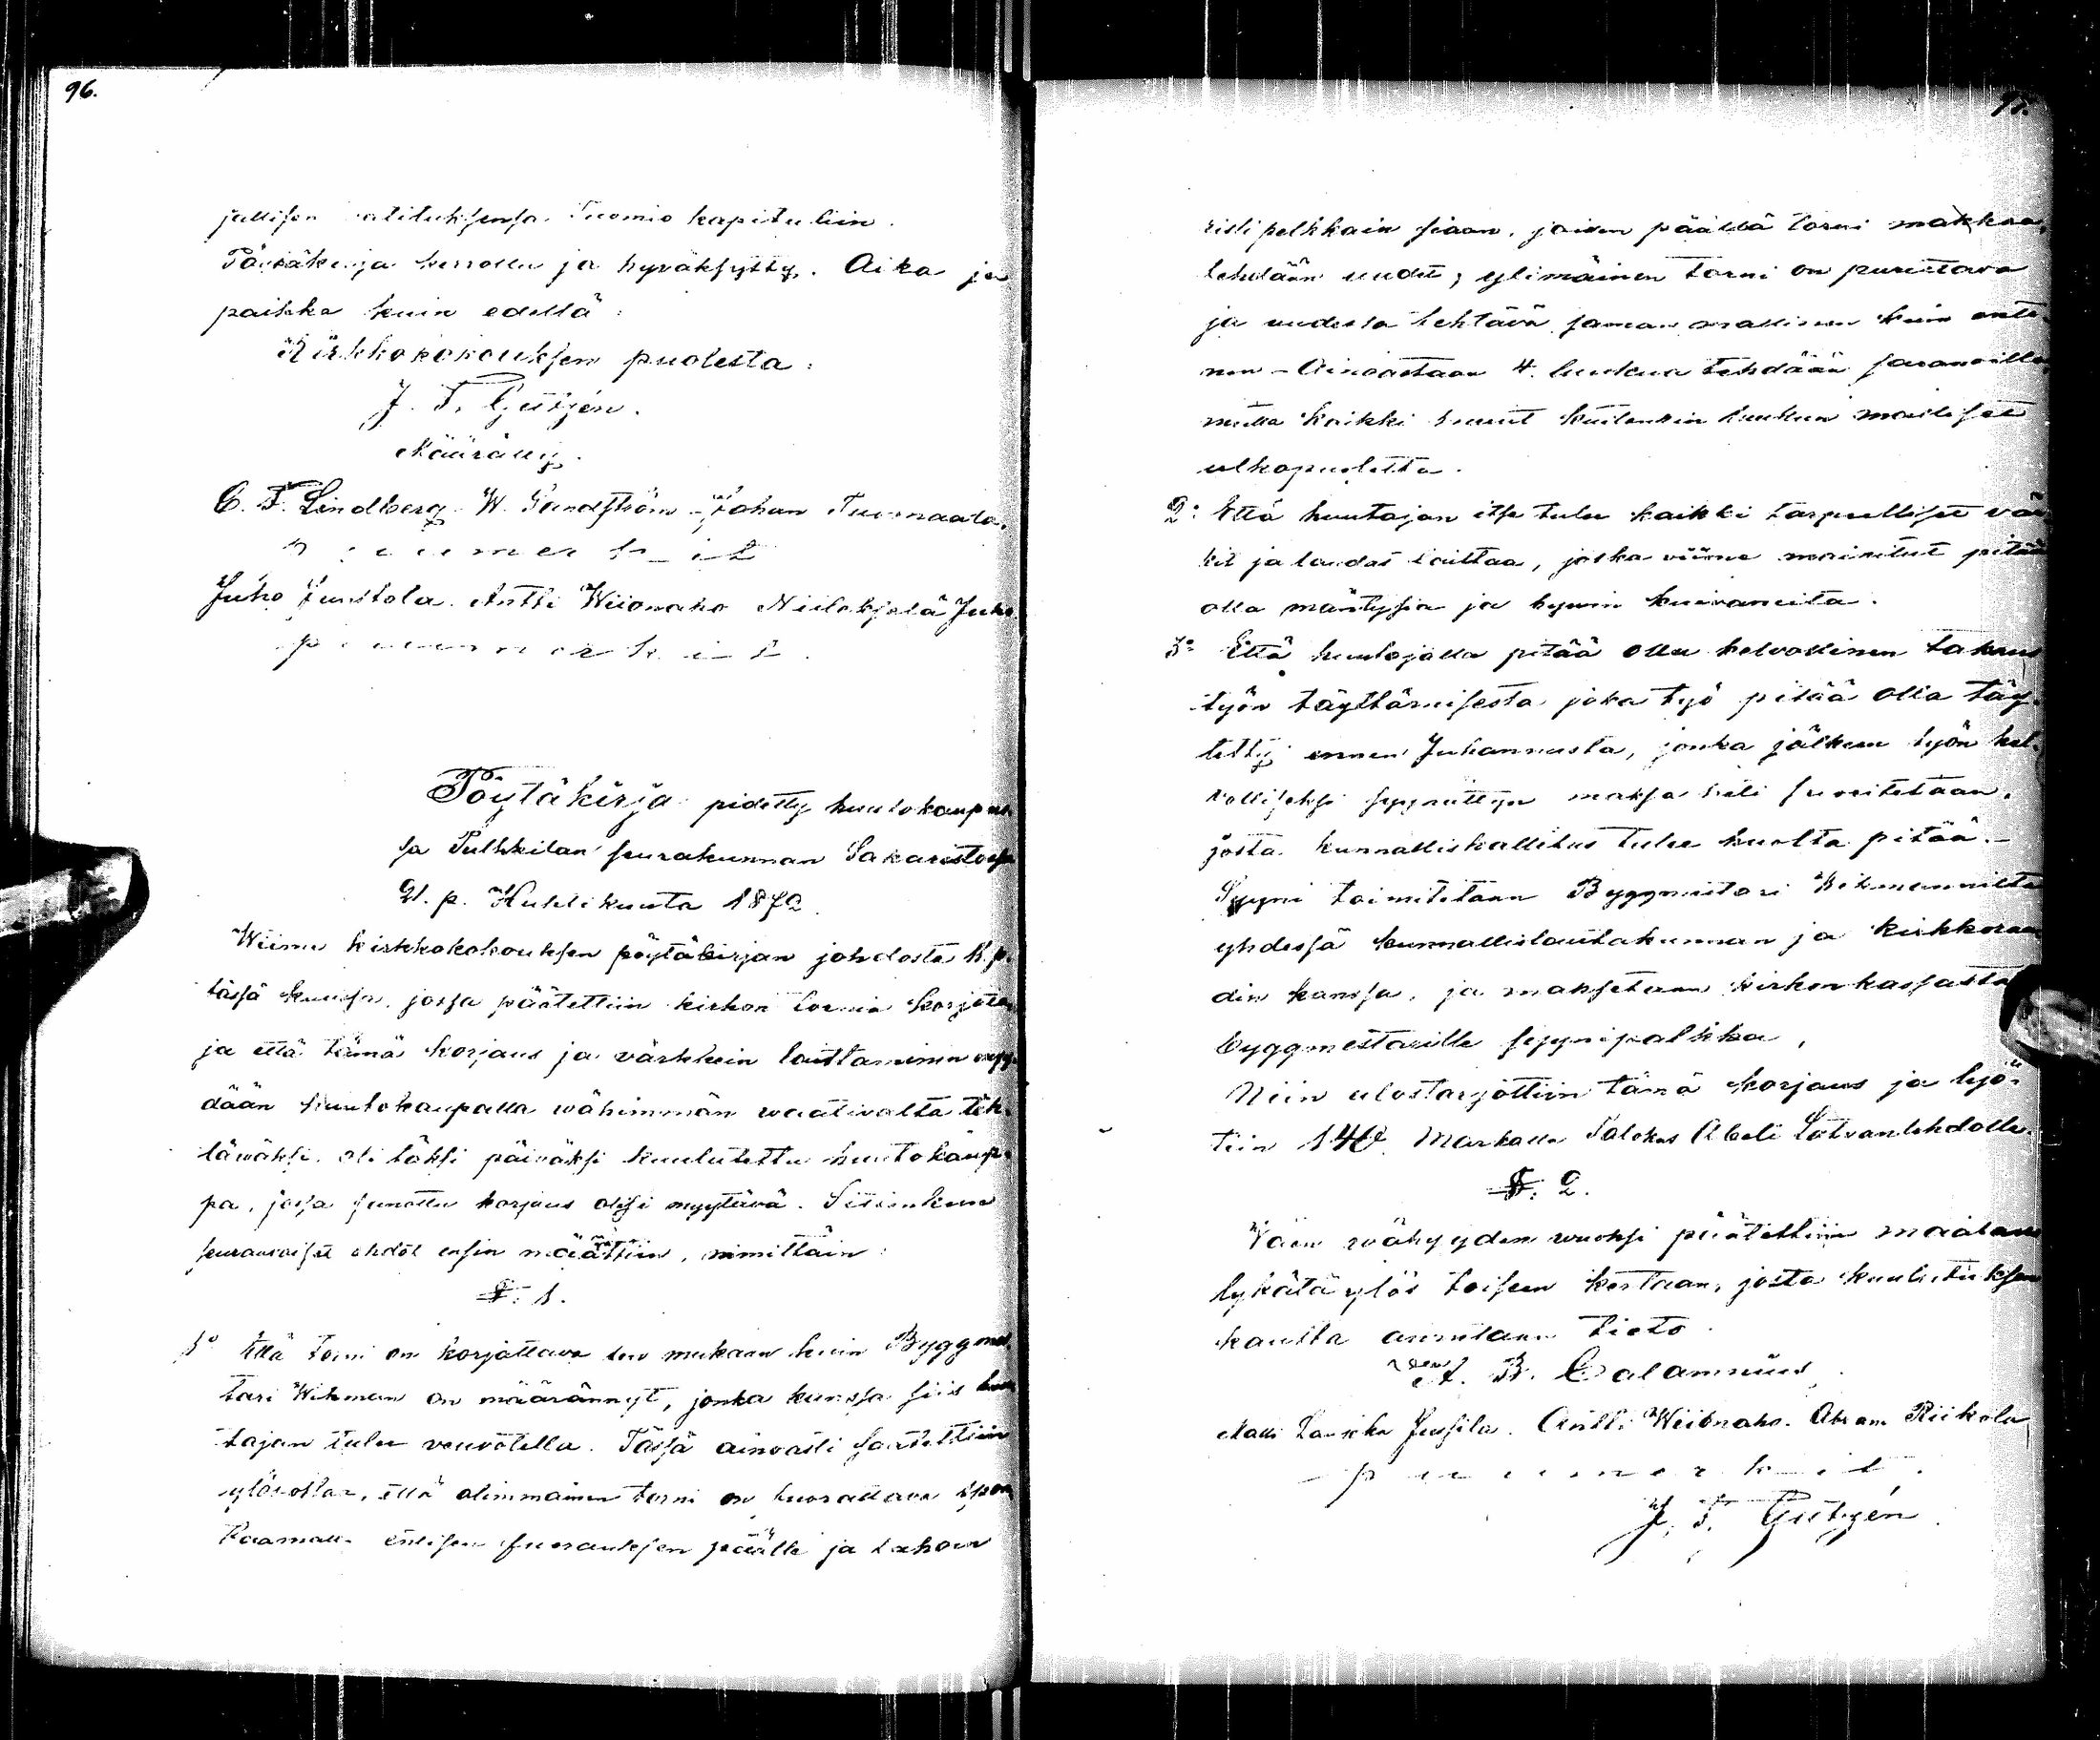 96.
jallisen valituksensa Tuomio kapituliin.
Pöytäkirja kerrottu ja hyväksytty. Aika ja
paikka kuin edellä:
Kirkkokokouksen puolesta:
J. F. Gutzén.
Määrätty.
C. F. Lindberg W. Sandström Johan Tuomaala
puumerkit
Juho Junttola. Antti Wiionaho Niilekselä Juho
puumerkit.
Pöytäkirja pidetty huutokaupas
sa Pulkkilan seurakunnan Sakaristossa
21. p. Huhtikuuta 1872.
Wiime kirkkokokouksen pöytäkirjan johdosta
tässä kuussa, jossa päätettiin kirkon tornia korjata
ja että tämä korjaus ja värkkein laittaminen
dään huutokaupalla wähimmän waativalta teh-
täwäksi, oli täksi päiväksi kuulutettu huutokaup-
pa, jossa sanottu korjaus olisi myytävä. Sitämkun
seuraavaiset ehdot ensin määrättiin, nimittäin:
§. 1.
1° Että torni on korjattava sen mukaan kuin Byggmes
tari Wikman on määrännyt, jonka kanssa siis huu
tajan tulee veuvotella. Tässä ainoasti saatettiin
ylösottaa, että alimmainen torni on vuorattava
Raamalla entisen fuorauksen päälle ja lahoin
97.
risti pelkkain siaan, joiden päällä torni makkaa,
tehdään uudet; ylimäinen torni on purettava
ja uudesta tehtävä saman muallinen kuin enti
nen - Ainoastaan 4 luukua tehdään saranoilla
mutta kaikki muut kuitenkin luukun moiliset
ulkopuolelta.
2° Että huutajan itse tulee kaikki tarpeelliset vär
kit ja laudat laittaa, jotka viime mainitut pitää
olla mäntysiä ja hywin kuivaneita.
3° Että huutajalla pitää olla kelvollinen takaus
työn täyttämisesta joka työ pitää olla täy-
tetty ennen Juhannusta, jonka jälkeen työn kel-
volliseksi syynättyn maksa heti suoritetaan,
josta kunnalliskallitus tulee huolta pitää.-
Syyni toimitetaan Byggmestari Wikmannilta
yhdessä kunnallislautakunnan ja kirkkoraa
din kanssa, ja maksetaan kirkon kassasta
byggmestarille syynipalkka.
Niin ulostarjottiin tämä korjaus ja lyö-
tiin 140 Markalla Talokas Abeli Latvanlehdolle.
§. 2.
Väen wähyyden wuoksi päätettiin maalaus
lykätä ylös toiseen kertaan, josta kuulutuksen
kautta annetaan tieto.
A. B. Calamnius
Matti Lauri Jussila. Antti Wiionaho. Abram Riikola
puumerkit.
J. F. Gutzén.